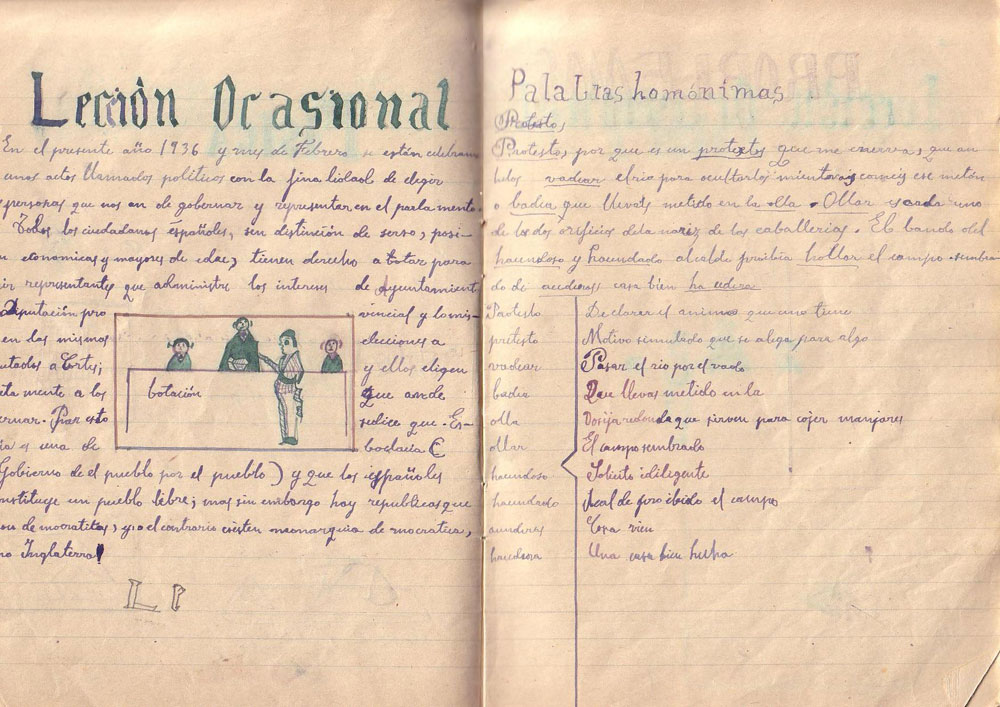 Lección Ocasional
En el presente año 1936 y mes de Febrero se están celebran
unos actos llamados politicos con la finalidad de elegir
personas que nos an de gobernar y representar en el parlamento.
Todos los ciudadanos españoles, sin distinción de serso, posi-
economicas y mayores de edad, tienen derecho a botar para
ir representantes que administre los interses de Ayuntamient
Diputación pro vincial y lo mis-
en las mismos elecciones a
utados a Cortes; y ellos eligen
mente a los que an de
ernar. Por esto se dice que Es-
ia es una de
Gobierno de el pueblo por el pueblo) y que los españoles
nstituye un pueblo libre; mas sin embargo hay republicas que
on de mocratitas, y o el contrario existen monarquia de mocratica,
mo Inglaterra
botación
L P
Palabras homónimas
Protesto,
Protesto, por que es un protexto que me enerva, que an
helos vadear el rio para ocultarlo mientras comeis ese
o badia que llevais metido en la olla. Ollar es cada uno
de los dos orificios de la nariz de las caballerias. El bando del
hacendoso y hacendado alcalde proibia hollar el campo sembra
do de casa bien ha
Protesto Declarar el animo que uno tiene
pretesto Motivo simulado que se alega para algo
vadear Pasar el rio por el vado
badia Que llevas metido en la
olla Vasija redonda que sirven para cojer manjares
ollar El campo sembrado
hacendoso Solicito i diligente
hacendado el campo
Cosa
Una casa bien hecha